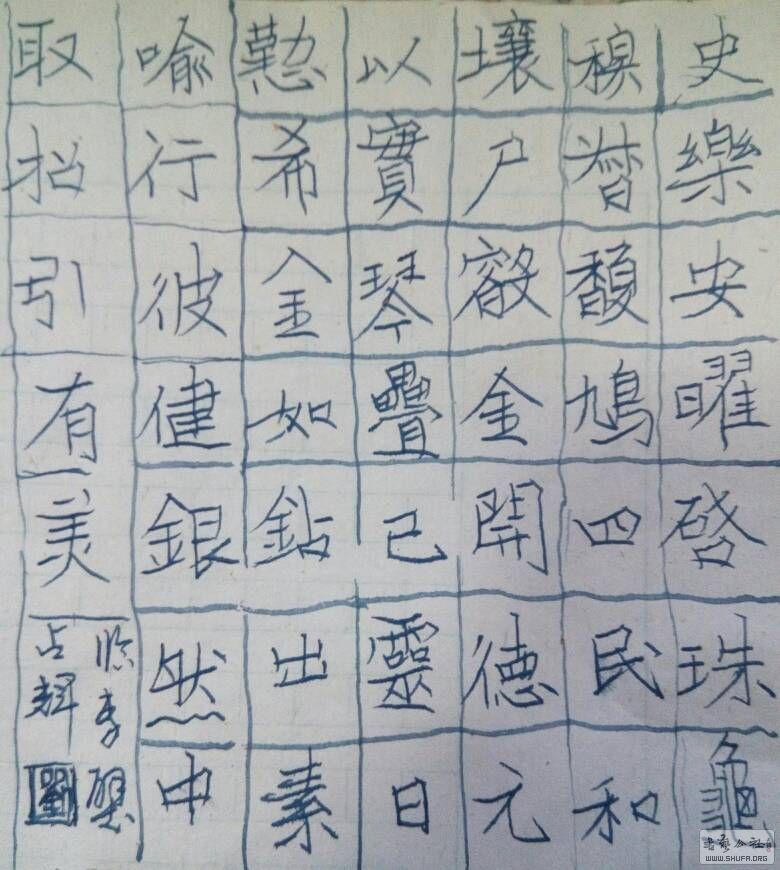 史樂安曜啓珠龜
穆馥鳩四民和
壤户金開德元
以實琴疊己靈日
懃希金如鉆出素
喻行彼健銀然中
取招引有美
临李
占輝
WWW.SHUFA.ORG